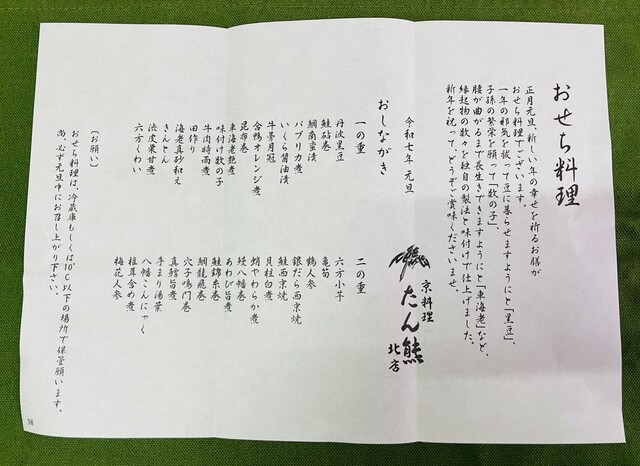 おせち料理
正月元旦、新しい年の幸せを祈るお膳が
おせち料理でございます。
一年の邪気を祓って豆に暮らせますようにと「黒豆」、
子孫の繁栄を願って「数の子」、
腰が曲がるまで長生きできますようにと「車海老」など、
縁起物の数々を独自の製法と味付けで仕上げました。
新年を祝って、どうぞご賞味くださいませ。
京料理
たん熊
北店
令和七年 元旦
おしながき
一の重
丹波黒豆
鮭砧巻
鯛南蛮漬
パプリカ煮
いくら醤油漬
牛蒡月冠
合鴨オレンジ煮
昆布巻
車海老艶煮
味付け数の子
牛肉時雨煮
田作り
海老真砂和え
きんとん
渋皮栗甘煮
六方くわい
二の重
六方小芋
亀筍
鶴人参
銀だら西京焼
鮭西京焼
貝柱白煮
蛸やわらか煮
鰻八幡巻
あわび旨煮
鮭錦糸巻
鯛龍飛巻
穴子鳴門巻
真鱈旨煮
手まり湯葉
八幡こんにゃく
椎茸含め煮
梅花人参
〔お願い〕
おせち料理は、冷蔵庫もしくは10℃以下の場所で保管願います。
尚、必ず元旦中にお召し上がり下さい。
38